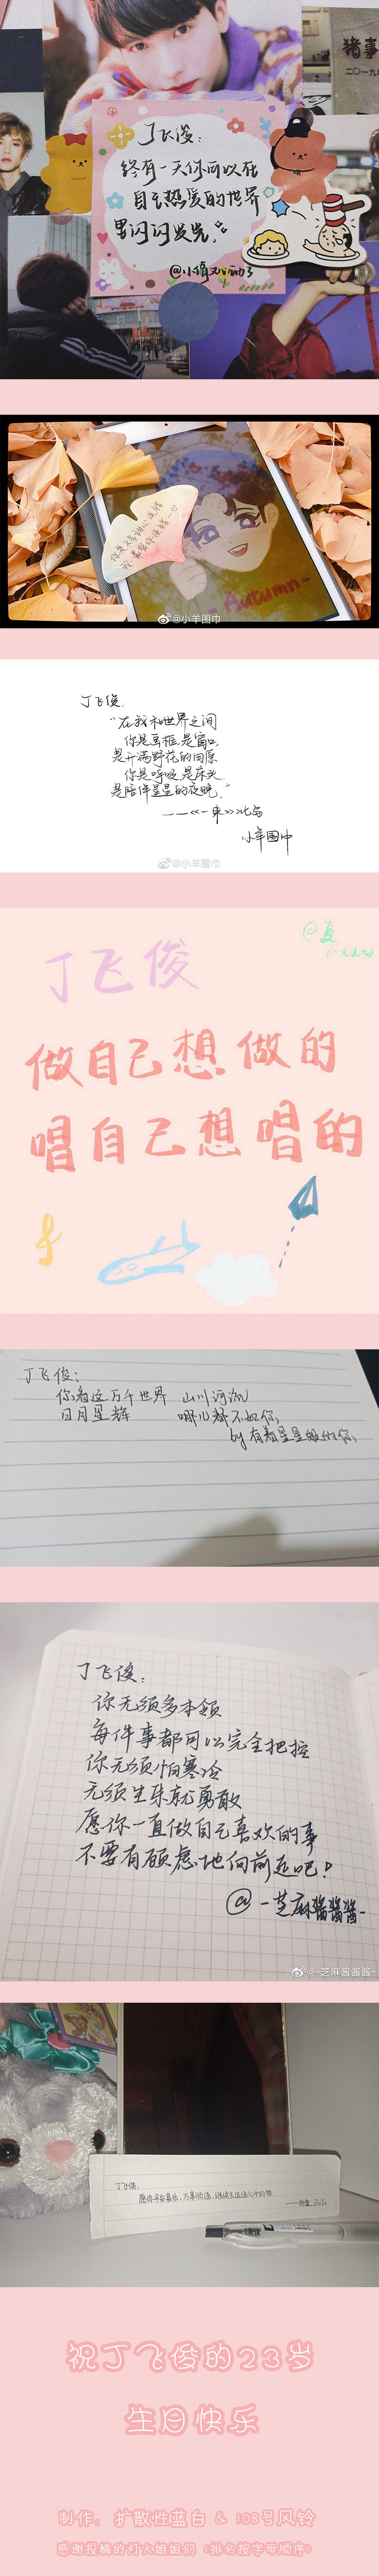 猪事
二〇一九
丁飞俊：
终有一天你可以在
自己热爱的世界
里闪闪发光。
@小倩又心动了
我最喜欢这样
Autumn
@小羊围巾
丁飞俊：
"在我和世界之间
你是画框,是窗口,
是开满野花的田原
你是呼吸,是床头
是陪伴星星的夜晚."
——<<一束>>北岛
小羊围巾
@小羊围巾
@夏
(一九九七)
丁飞俊
做自己想做的
唱自己想唱的
丁飞俊：
你看这万千世界 山川河流
日月星辉 哪儿都不如你,
by 有着星星般的你,
丁飞俊：
你无须多本领
每件事都可以完全把控
你无须怕寒冷
无须生来就勇敢
愿你一直做自己喜欢的事
不要有顾虑地向前走吧！
@-芝麻酱酱酱-
@-芝麻酱酱酱-
丁飞俊：
愿你平安喜乐，万事胜意，继续去追逐心中的梦
祝丁飞俊的23岁
生日快乐
制作：扩散性蓝白 & 108号风铃
感谢投稿的灯火姐姐们（排名按字母顺序）